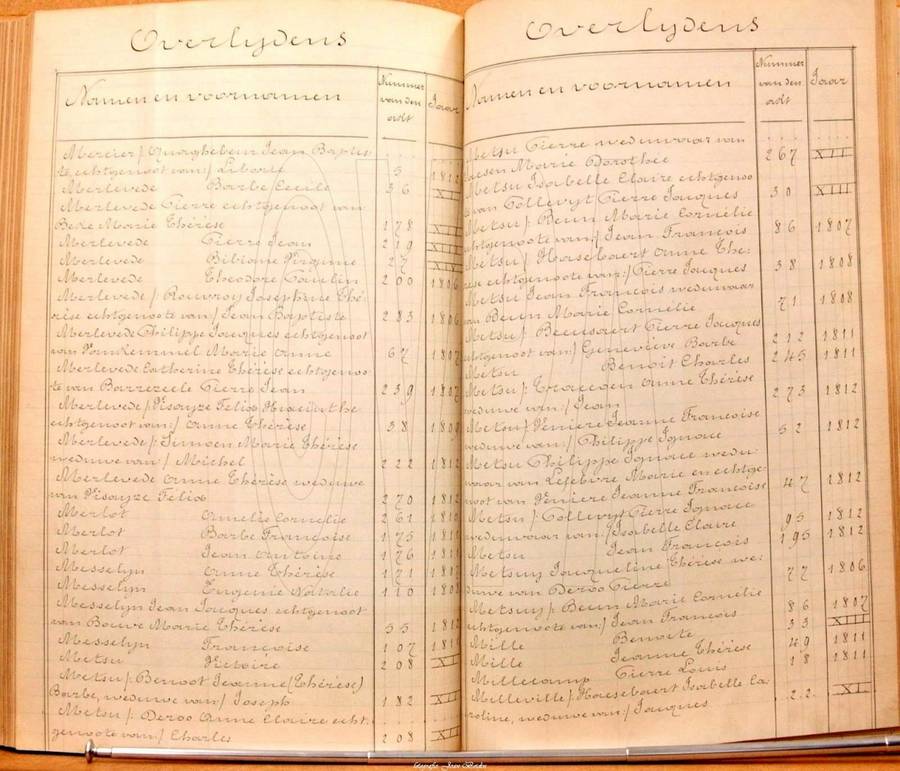 Overlydens
Namen en voornamen
Nummer
van den
adt
Jaar
Mercier /: Quaghebeur Jean Baptis-
te, echtgenoot van:/ Liborie 5 1812
Merlevede Barbe Cecile 36 XII
Merlevede Pierre echtgenoot van
Beke Marie Thérèse 178 XII
Merlevede Pierre Jean 219
Merlevede Bibiane Virginie 27
Merlevede Theodore Paulin 200 1806
Merlevede /: Rouvroy Josephine Thé-
rèse echtgenoote van:/ Jean Baptiste 283 1806
Merlevede Philippe Jacques echtgenoot
van Vankemmel Marie Anne 67 1807
Merlevede Catherine Thérèse echtgenoo-
te van Barrezeele Pierre Jean 239 1807
Merlevede /: Visayze Felix Hiacinthe
echtgenoot van:/ Anne Thérèse 38 1809
Merlevede /: Simoen Marie Thérèse
weduwe van:/ Michel 222 1812
Merlevede Anne Thérèse weduwe
van Visayze Felix 270 1812
Merlot Amelie Cornelie 261 1810
Merlot Barbe Françoise 175 1811
Merlot Jean Antoine 176 1811
Messelyn Anne Thérèse 171 1812
Messelyn Eugenie Natalie 110 1808
Messelyn Jean Jacques echtgenoot
van Bouve Marie Thérèse 55 1812
Messelyn Françoise 107 1811
Metsu Victoire 208 XII
Metsu /: Benoot Jeanne (Thérèse)
Barbe, weduwe van:/ Joseph 182 XII
Metsu /: Deroo Anne Claire echt-
genoote van:/ Charles 208 XII
Overlydens
Namen en voornamen
Nummer
van den
adt
Jaar
Metsu Pierre weduwaar van
Caesen Marie Dorothée 267 XII
Metsu Isabelle Claire echtgenoo
te van Collevyt Pierre Jacques 30 XIII
Metsu /: Beun Marie Cornélie
echtgenoote van:/ Jean François 86 1807
Metsu /: Haesebaert Anne Thé-
rèse echtgenoote van:/ Pierre Jacques 38 1808
Metsu Jean François weduwaar
van Beun Marie Cornélie 71 1808
Metsu /: Beeusaert Pierre Jacques
echtgenoot van:/ Geneviève Barbe 212 1811
Metsu Benoit Charles 245 1811
Metsu /: Anne Thérèse
weduwe van:/ Jean 273 1812
Metsu /: Veniere Jeanne Françoise
weduwe van:/ Philippe Ignace 52 1812
Metsu Philippe Ignace wedu-
waar van Lefebvre Marie en echtge-
noot van Veniere Jeanne Françoise 47 1812
Metsu /: Collevyt Pierre Ignace
weduwaar van:/ Isabelle Claire 95 1812
Metsu Jean François 195 1812
Metsuy Jacqueline Thérèse we-
duwe van Deroo Pierre 77 1806
Metsuy /: Beun Marie Cornelie
echtgenoote van:/ Jean François 86 1807
Mille Benoite 33 XIII
Mille Jeanne Thérèse 49 1811
Millecamp Pierre Louis 18 1811
Milleville /: Haesebaert Isabelle Ca-
roline, weduwe van:/ Jacques 22 XI